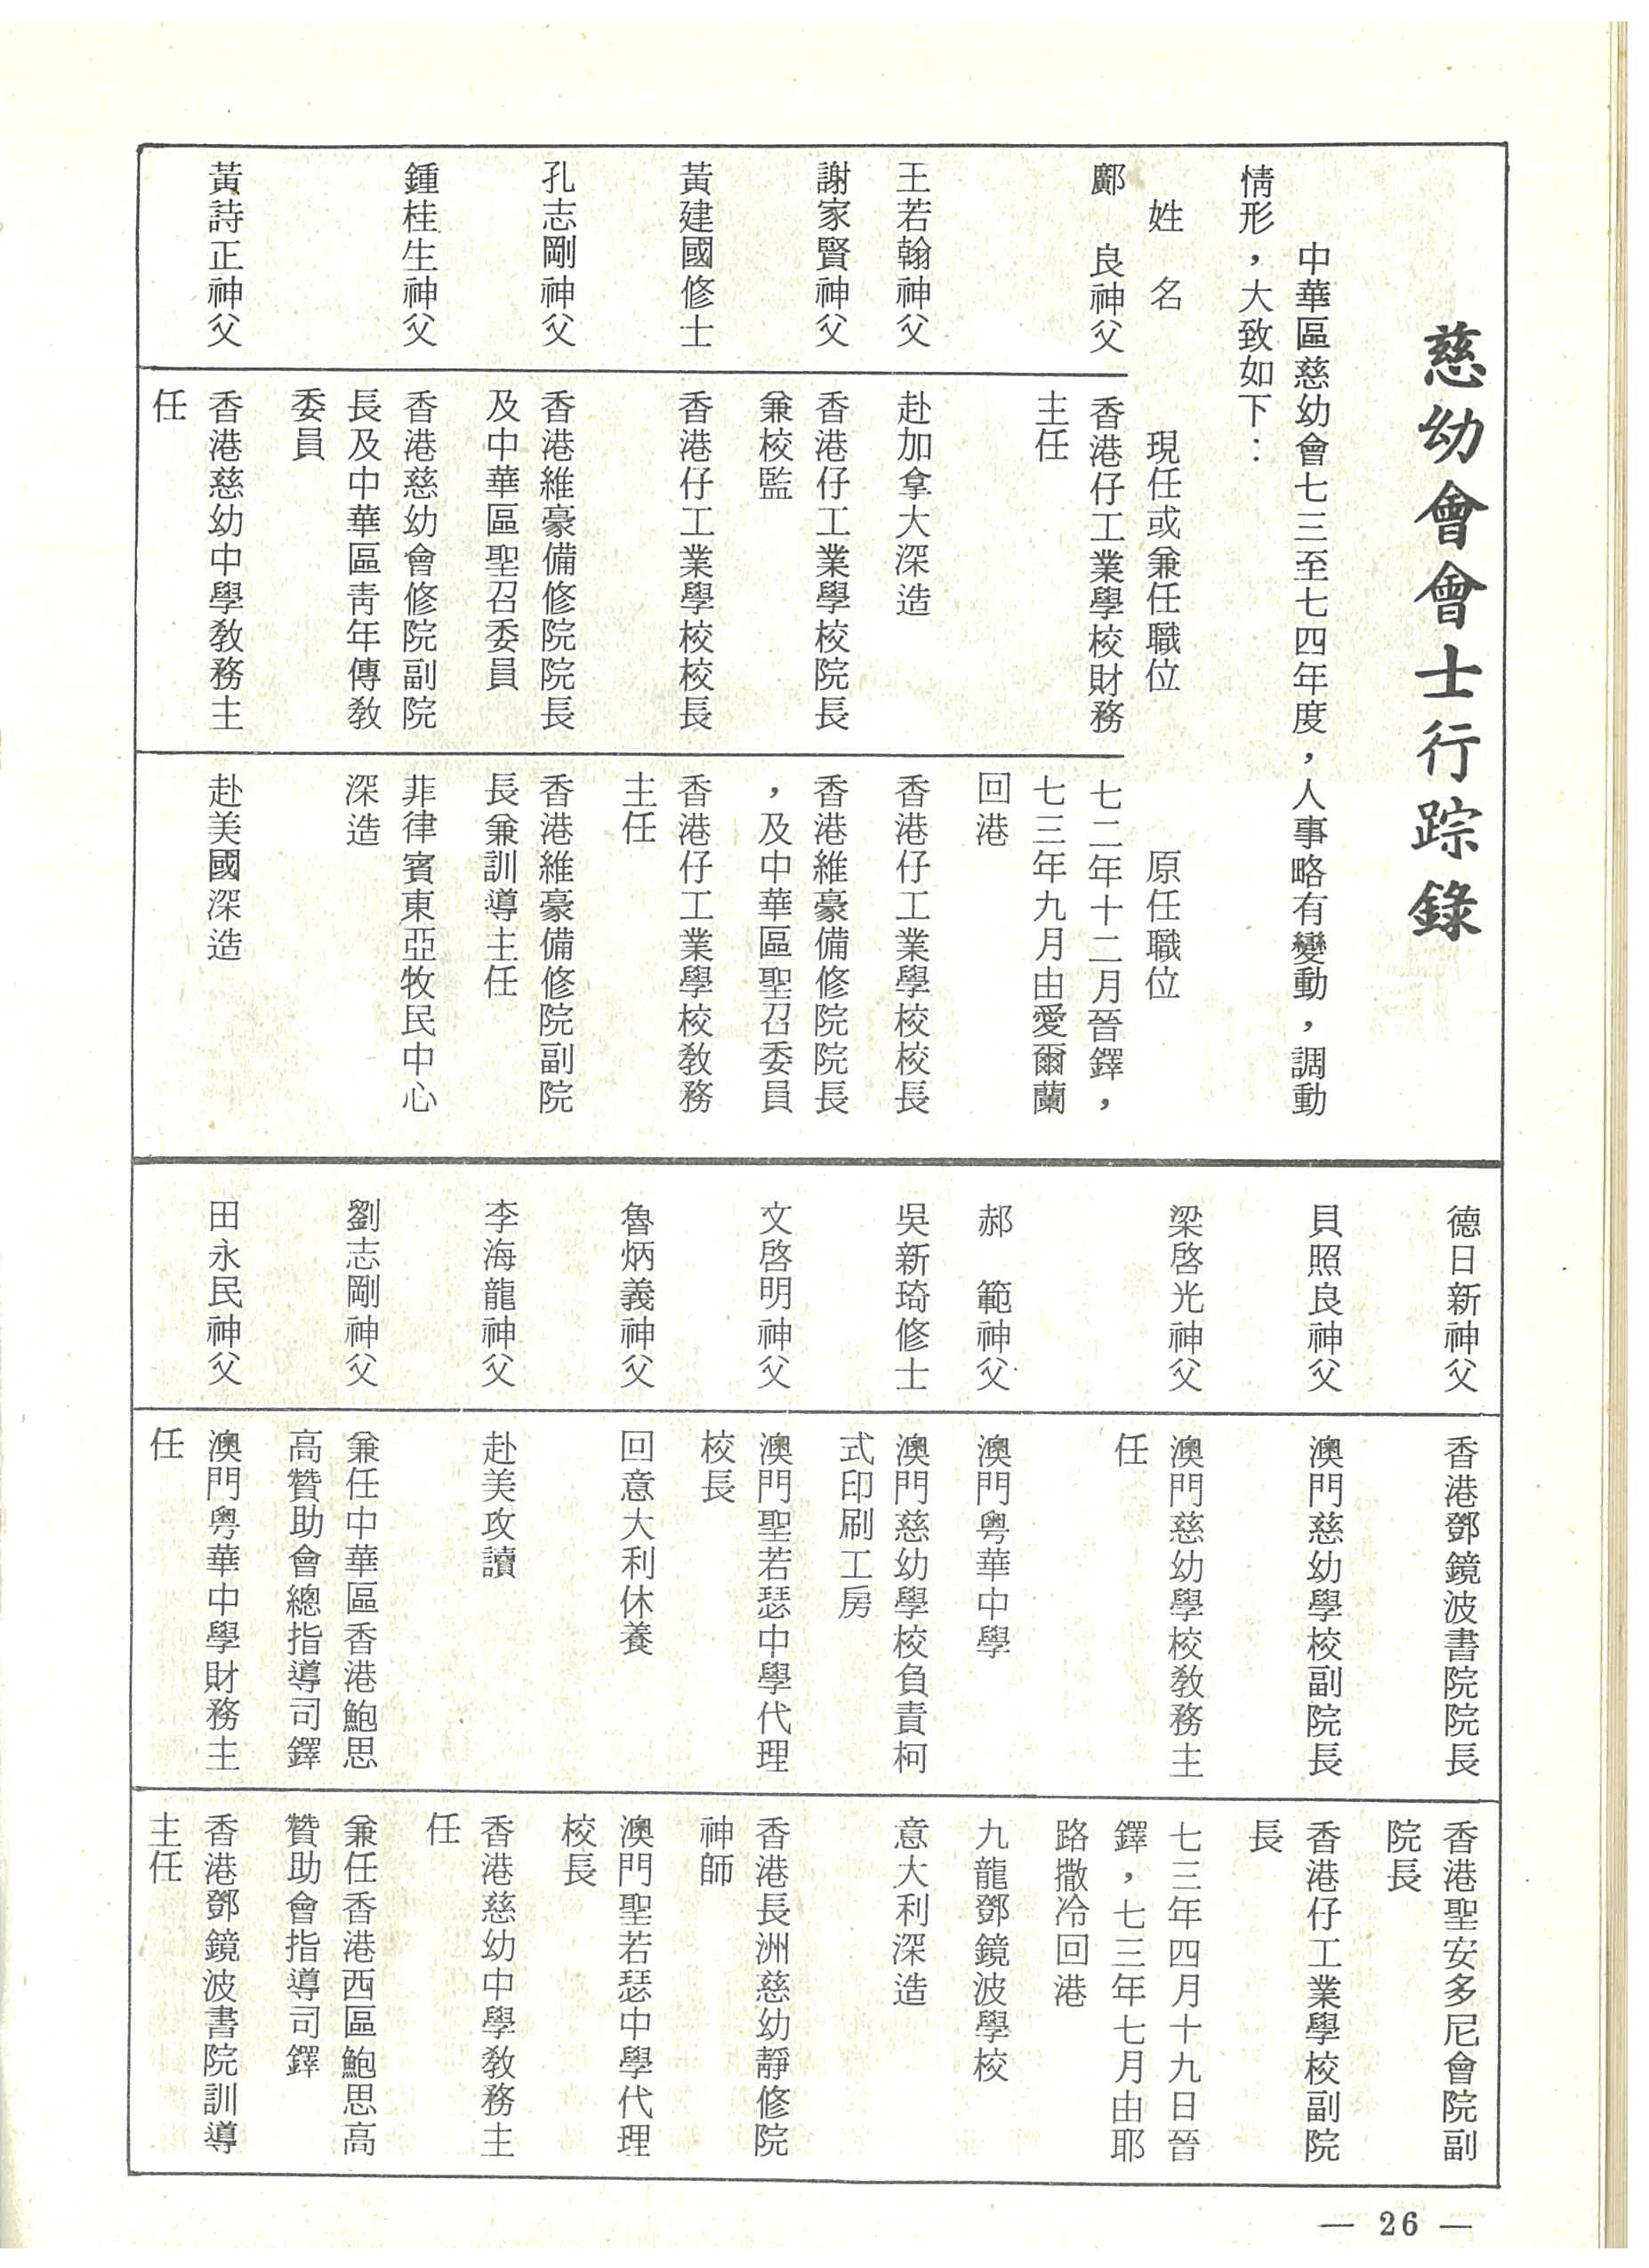 慈幼會會士行踪錄
中華區慈幼會七三至七四年度，人事略有變動，調動
情形，大致如下：
姓　名
現任或兼任職位
原任職位
鄺　良神父
香港仔工業學校財務
主任
七二年十二月晉鐸，
七三年九月由愛爾蘭
回港
王若翰神父
赴加拿大深造
香港仔工業學校校長
謝家賢神父
香港仔工業學校院長
兼校監
香港維豪備修院院長
，及中華區聖召委員
黃建國修士
香港仔工業學校校長
香港仔工業學校教務
主任
孔志剛神父
香港維豪備修院院長
及中華區聖召委員
香港維豪備修院副院
長兼訓導主任
鍾桂生神父
香港慈幼會修院副院
長及中華區靑年傳敎
委員
菲律賓東亞牧民中心
深造
黃詩正神父
香港慈幼中學敎務主
任
赴美國深造
德日新神父
香港鄧鏡波書院院長
香港聖安多尼會院副
院長
貝照良神父
澳門慈幼學校副院長
香港仔工業學校副院
長
梁啓光神父
澳門慈幼學校敎務主
任
七三年四月十九日晉
鐸，七三年七月由耶
路撒冷回港
郝　範神父
澳門粵華中學
九龍鄧鏡波學校
吳新琦修士
澳門慈幼學校負責柯
式印刷工房
意大利深造
文啓明神父
澳門聖若瑟中學代理
校長
香港長洲慈幼靜修院
神師
魯炳義神父
回意大利休養
澳門聖若瑟中學代理
校長
李海龍神父
赴美攻讀
香港慈幼中學敎務主
任
劉志剛神父
兼任中華區香港鮑思
高贊助會總指導司鐸
兼任香港西區鮑思高
贊助會指導司鐸
田永民神父
澳門粵華中學財務主
任
香港鄧鏡波書院訓導
主任
— 26 —